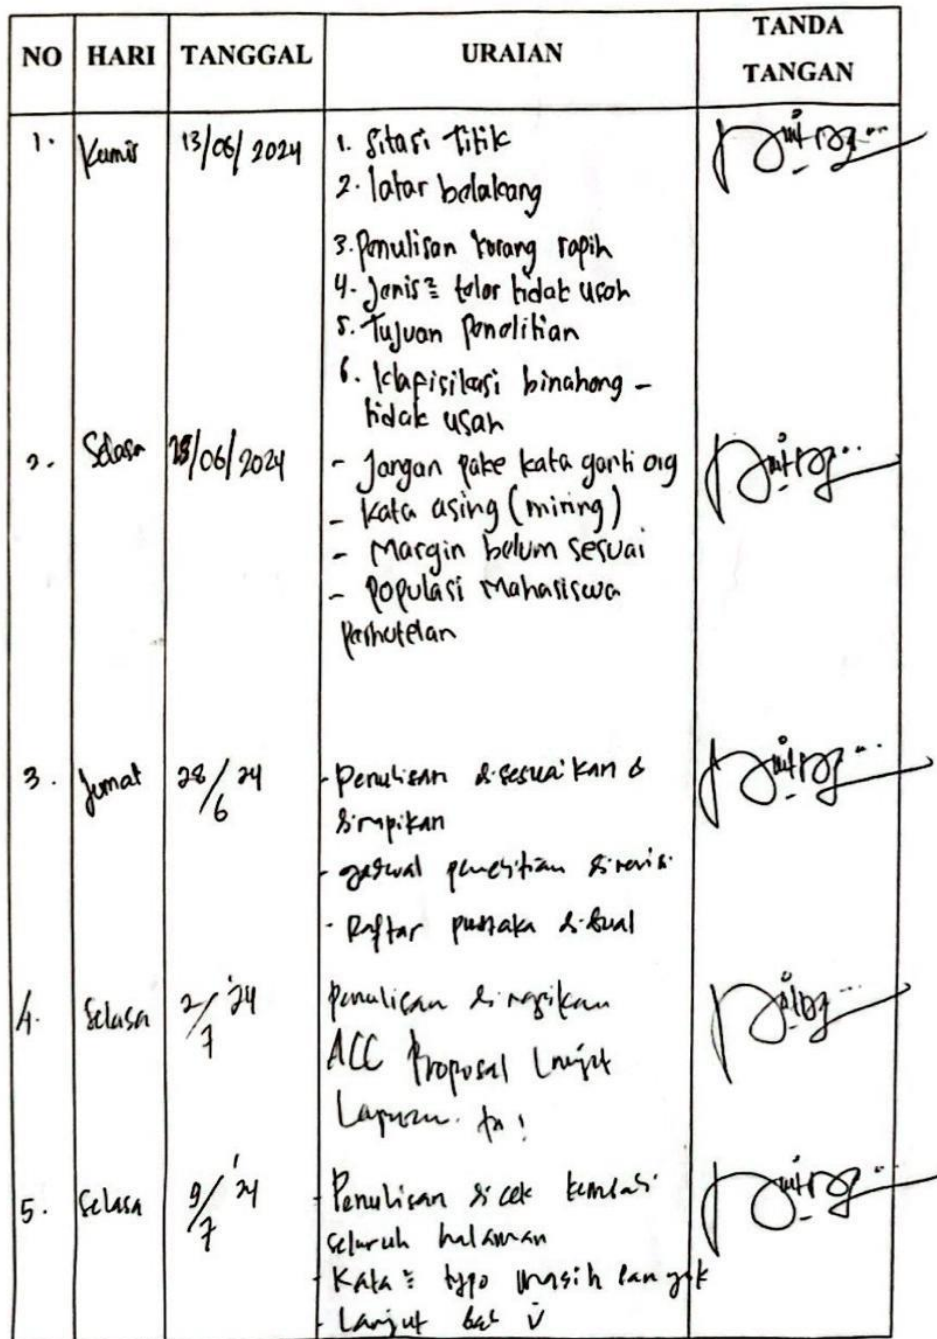 NO HARI TANGGAL URAIAN TANDA TANGAN
1. Kamis 13/06/2024 1. Sitasi Titik
2. latar belakang
3. Penulisan kurang rapih
4. Jenis² telor tidak usah
5. Tujuan Penelitian
6. Klafisikasi binahong -
tidak usah
2. Selasa /06/2024 - Jangan pake kata ganti org
- kata asing (miring)
- Margin belum sesuai
- Populasi Mahasiswa
Perhotelan
3. Jumat 28/6 24 - Penulisan disesuaikan &
dirapikan
- Jadwal penelitian direvisi
- Daftar pustaka dibuat
4. Selasa 2/7 '24 Penulisan dirapikan
ACC Proposal Lanjut
Laporan
5. Selasa 9/7 '24 - Penulisan dicek kembali
seluruh halaman
- Kata² typo masih banyak
- Lanjut bab